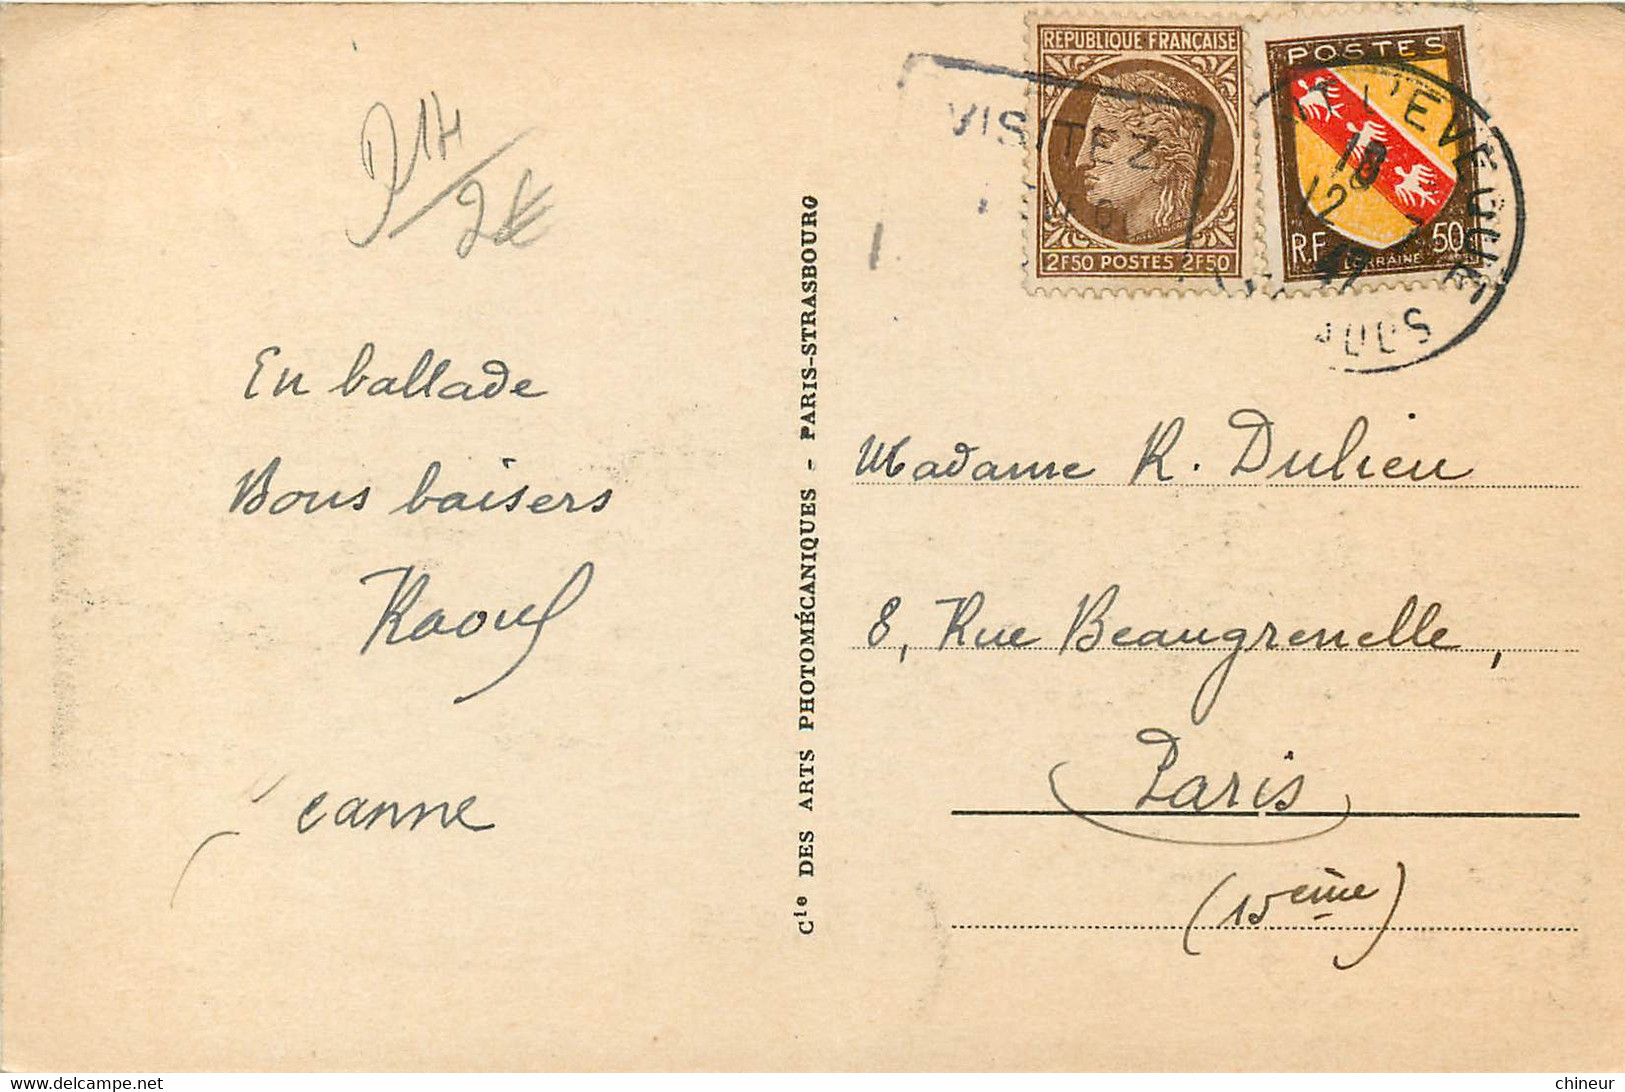 D14/2€
En ballade
Bons baisers
Raoul
Jeanne
Cie DES ARTS PHOTOMÉCANIQUES - PARIS-STRASBOURG
REPUBLIQUE FRANÇAISE
2F50 POSTES 2F50
POSTES
R.F.
50
LORRAINE
VISITEZ
18
12
47
Madame R. Dulieu
8, Rue Beaugrenelle,
Paris
(15ème)
chineur